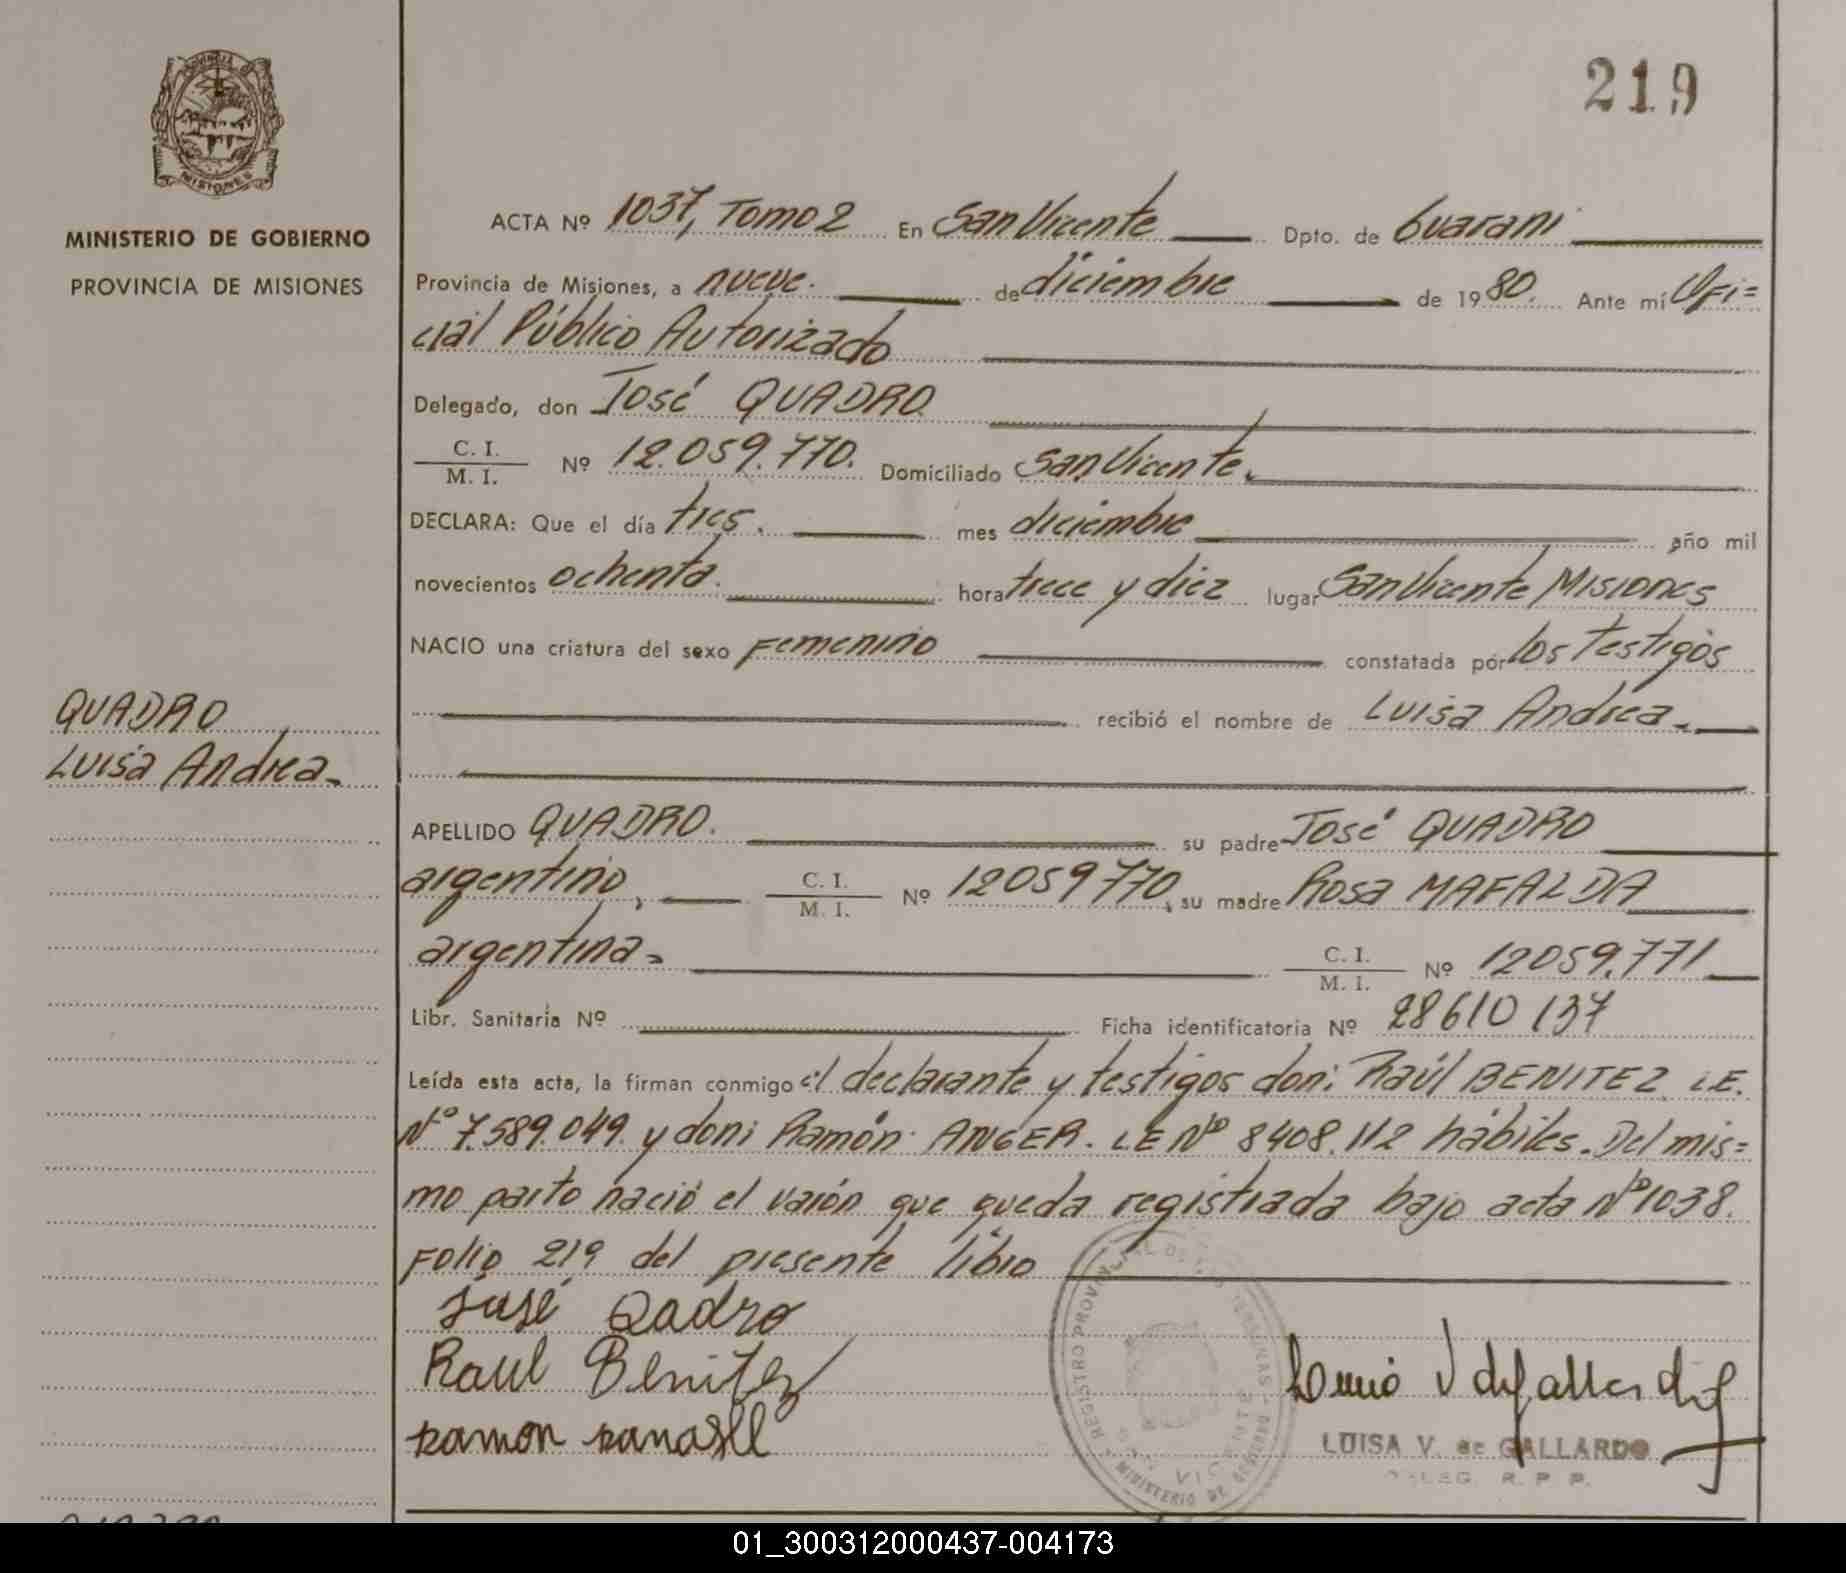 219
PROVINCIA DE
MISIONES
MINISTERIO DE GOBIERNO
PROVINCIA DE MISIONES
ACTA Nº 1037, Tomo 2 En San Vicente Dpto. de Guarani
Provincia de Misiones, a nueve. de diciembre de 1980. Ante mí Ofi=
cial Público Autorizado
Delegado, don José QUADRO
C. I.
M. I. Nº 12.059.770. Domiciliado San Vicente.
DECLARA: Que el día tres. mes diciembre año mil
novecientos ochenta. hora trece y diez lugar San Vicente Misiones
NACIO una criatura del sexo Femenino constatada por los Testigos
recibió el nombre de Luisa Andrea.
QUADRO
Luisa Andrea.
APELLIDO QUADRO. su padre José QUADRO
argentino, C. I.
M. I. Nº 12059770, su madre Rosa MAFALDA
argentina. C. I.
M. I. Nº 12059.771
Libr. Sanitaria Nº Ficha identificatoria Nº 28610137
Leída esta acta, la firman conmigo el declarante y testigos don: Raúl BENITEZ L.E.
Nº 7.589.049. y don: Ramón ANGER. LE Nº 8408.112 hábiles. Del mis=
mo parto nació el varón que queda registrada bajo acta Nº 1038.
Folio 219 del presente libro
José Qadro
Raul Benitez
ramon
REGISTRO PROVINCIAL DE LAS PERSONAS
MINISTERIO DE GOBIERNO
SAN VICENTE
LUISA V. de GALLARDO
DELEG. R. P. P.
01_300312000437-004173